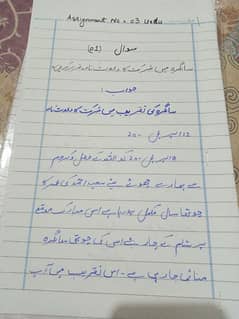 Assignment No: 03 Urdu
سوال (01)
سالگرہ میں شرکت کا دعوت نامہ تحریر کریں
جواب:
سالگرہ کی تقریب میں شرکت کا دعوت نامہ
12 اپریل 200
اپریل 200 کو اللہ کے فضل و کرم
سے ہمارے چھوٹے بیٹے کی عمر کا
چوتھا سال مکمل ہو رہا ہے اسی مبارک موقع
پر شام کے چار بجے اس کی چوتھی سالگرہ
منائی جا رہی ہے۔ اس تقریب میں آپ